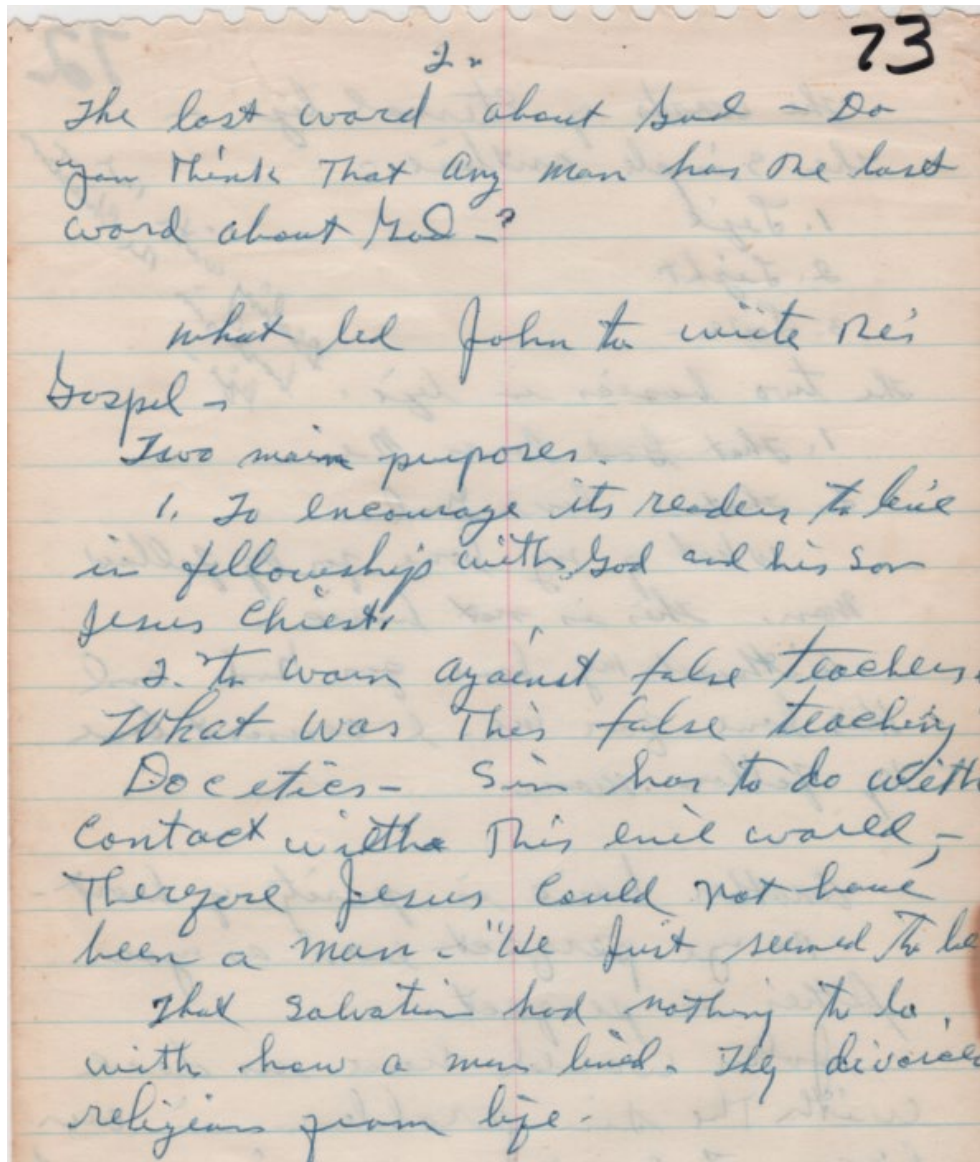 73
2.
The last word about God - Do
you think that any man has the last
word about God -?
What led John to write this
Gospel -
Two main purposes.
1. To encourage its readers to live
in fellowship with God and his Son
Jesus Christ.
2. To warn against false teachers.
What was this false teaching
Docetics - Sin has to do with
contact with this evil world,-
Therefore Jesus could not have
been a man - "He just seemed to be
That salvation had nothing to do
with how a man lived. They divorced
religion from life -